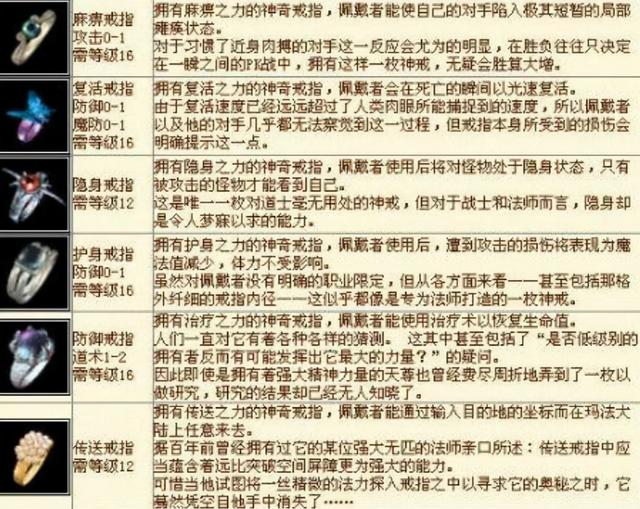 麻痹戒指
攻击0-1
需等级16
拥有麻痹之力的神奇戒指，佩戴者能使自己的对手陷入极其短暂的局部
瘫痪状态。
对于习惯了近身肉搏的对手这一反应会尤为的明显，在胜负往往只决定
在一瞬之间的PK战中，拥有这样一枚神戒，无疑会胜算大增。
复活戒指
防御0-1
魔防0-1
需等级16
拥有复活之力的神奇戒指，佩戴者会在死亡的瞬间以光速复活。
由于复活速度已经远远超过了人类肉眼所能捕捉到的速度，所以佩戴者
以及他的对手几乎都无法察觉到这一过程，但戒指本身所受到的损伤会
明确提示这一点。
隐身戒指
需等级12
拥有隐身之力的神奇戒指，佩戴者使用后将对怪物处于隐身状态，只有
被攻击的怪物才能看到自己。
这是唯一一枚对道士毫无用处的神戒，但对于战士和法师而言，隐身却
是令人梦寐以求的能力。
护身戒指
防御0-1
需等级16
拥有护身之力的神奇戒指，佩戴者使用后，遭到攻击的损伤将表现为魔
法值减少，体力不受影响。
虽然对佩戴者没有明确的职业限定，但从各方面来看——甚至包括那格
外纤细的戒指内径——这似乎都像是专为法师打造的一枚神戒。
防御戒指
道术1-2
需等级16
拥有治疗之力的神奇戒指，佩戴者能使用治疗术以恢复生命值。
人们一直对它有着各种各样的猜测。 这其中甚至包括了“是否低级别的
拥有者反而有可能发挥出它最大的力量？”的疑问。
因此即使是拥有着强大精神力量的天尊也曾经费尽周折地弄到了一枚以
做研究，研究的结果却已经无人知晓了。
传送戒指
需等级12
拥有传送之力的神奇戒指，佩戴者能通过输入目的地的坐标而在玛法大
陆上任意来去。
据百年前曾经拥有过它的某位强大无匹的法师亲口所述：传送戒指中应
当蕴含着远比突破空间屏障更为强大的能力。
可惜当他试图将一丝精微的法力探入戒指之中以寻求它的奥秘之时，它
蓦然凭空自他手中消失了……